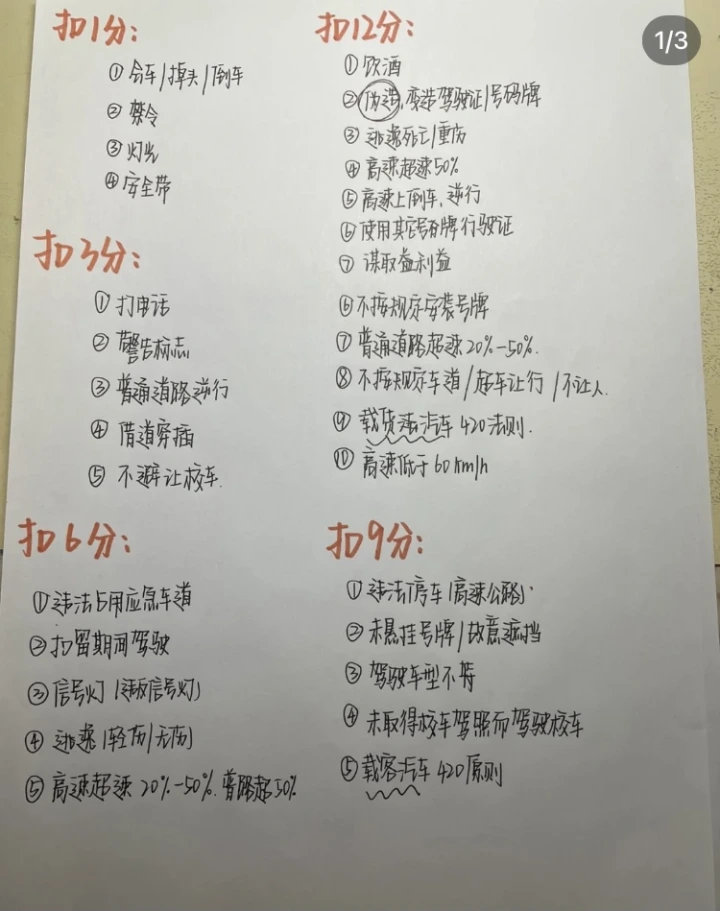 1/3
扣1分:
①会车/掉头/倒车
②禁令
③灯光
④安全带
扣3分:
①打电话
②警告标志
③普通道路逆行
④借道穿插
⑤不避让校车.
扣12分:
①饮酒
②伪造、变造驾驶证/号码牌
③逃逸死亡/重伤
④高速超速50%
⑤高速上倒车、逆行
⑥使用其它号码牌行驶证
⑦谋取益利益
⑥不按规定安装号牌
⑦普通道路超速20%-50%.
⑧不按规定车道/超车让行/不让人.
⑨载货汽车420法则.
⑩高速低于60km/h
扣6分:
①违法占用应急车道
②扣留期间驾驶
③信号灯(违反信号灯)
④逃逸(轻伤/无伤)
⑤高速超速20%-50%.普路超50%
扣9分:
①违法停车(高速公路)
②未悬挂号牌/故意遮挡
③驾驶车型不符
④未取得校车驾照而驾驶校车
⑤载客汽车420原则